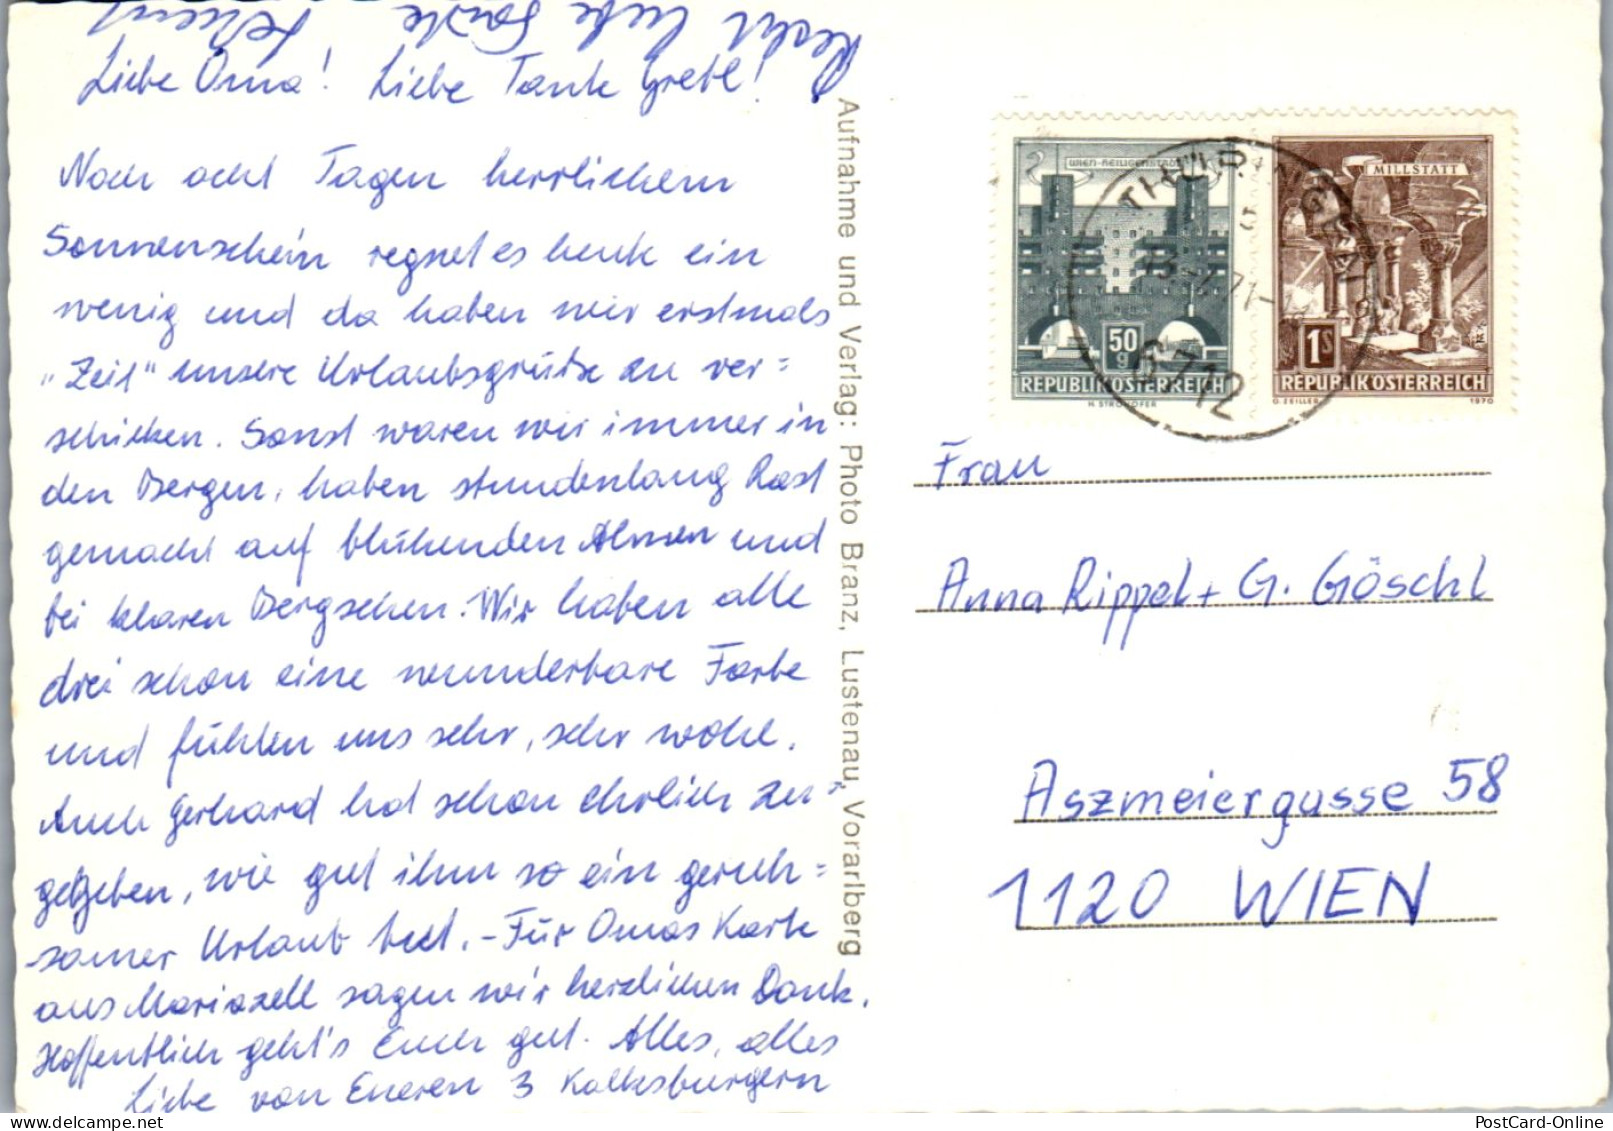 Recht liebe Grüße
Liebe Oma! Liebe Tante Gretl!
Nach acht Tagen herrlichem
Sonnenschein regnet es heute ein
wenig und da haben wir erstmals
"Zeit" unsere Urlaubsgrüße zu ver=
schicken. Sonst waren wir immer in
den Bergen, haben stundenlang Rast
gemacht auf blühenden Almen und
bei klaren Bergseen. Wir haben alle
drei schon eine wunderbare Farbe
und fühlen uns sehr, sehr wohl.
Auch Gerhard hat schon ehrlich zu=
gegeben, wie gut ihm so ein geruh=
samer Urlaub tut. - Für Omas Karte
aus Mariazell sagen wir herzlichen Dank.
Hoffentlich geht's Euch gut. Alles, alles
Liebe von Eueren 3 Kalksburgern
Aufnahme und Verlag: Photo Branz, Lustenau, Vorarlberg
WIEN-HEILIGENSTADT
50 g
REPUBLIK ÖSTERREICH
H. STROHOFER
MILLSTATT
1 S
REPUBLIK ÖSTERREICH
G. ZEILLER 1970
THÜRINGEN
6712
Frau
Anna Rippel + G. Göschl
Aszmeiergasse 58
1120 WIEN
PostCard-Online